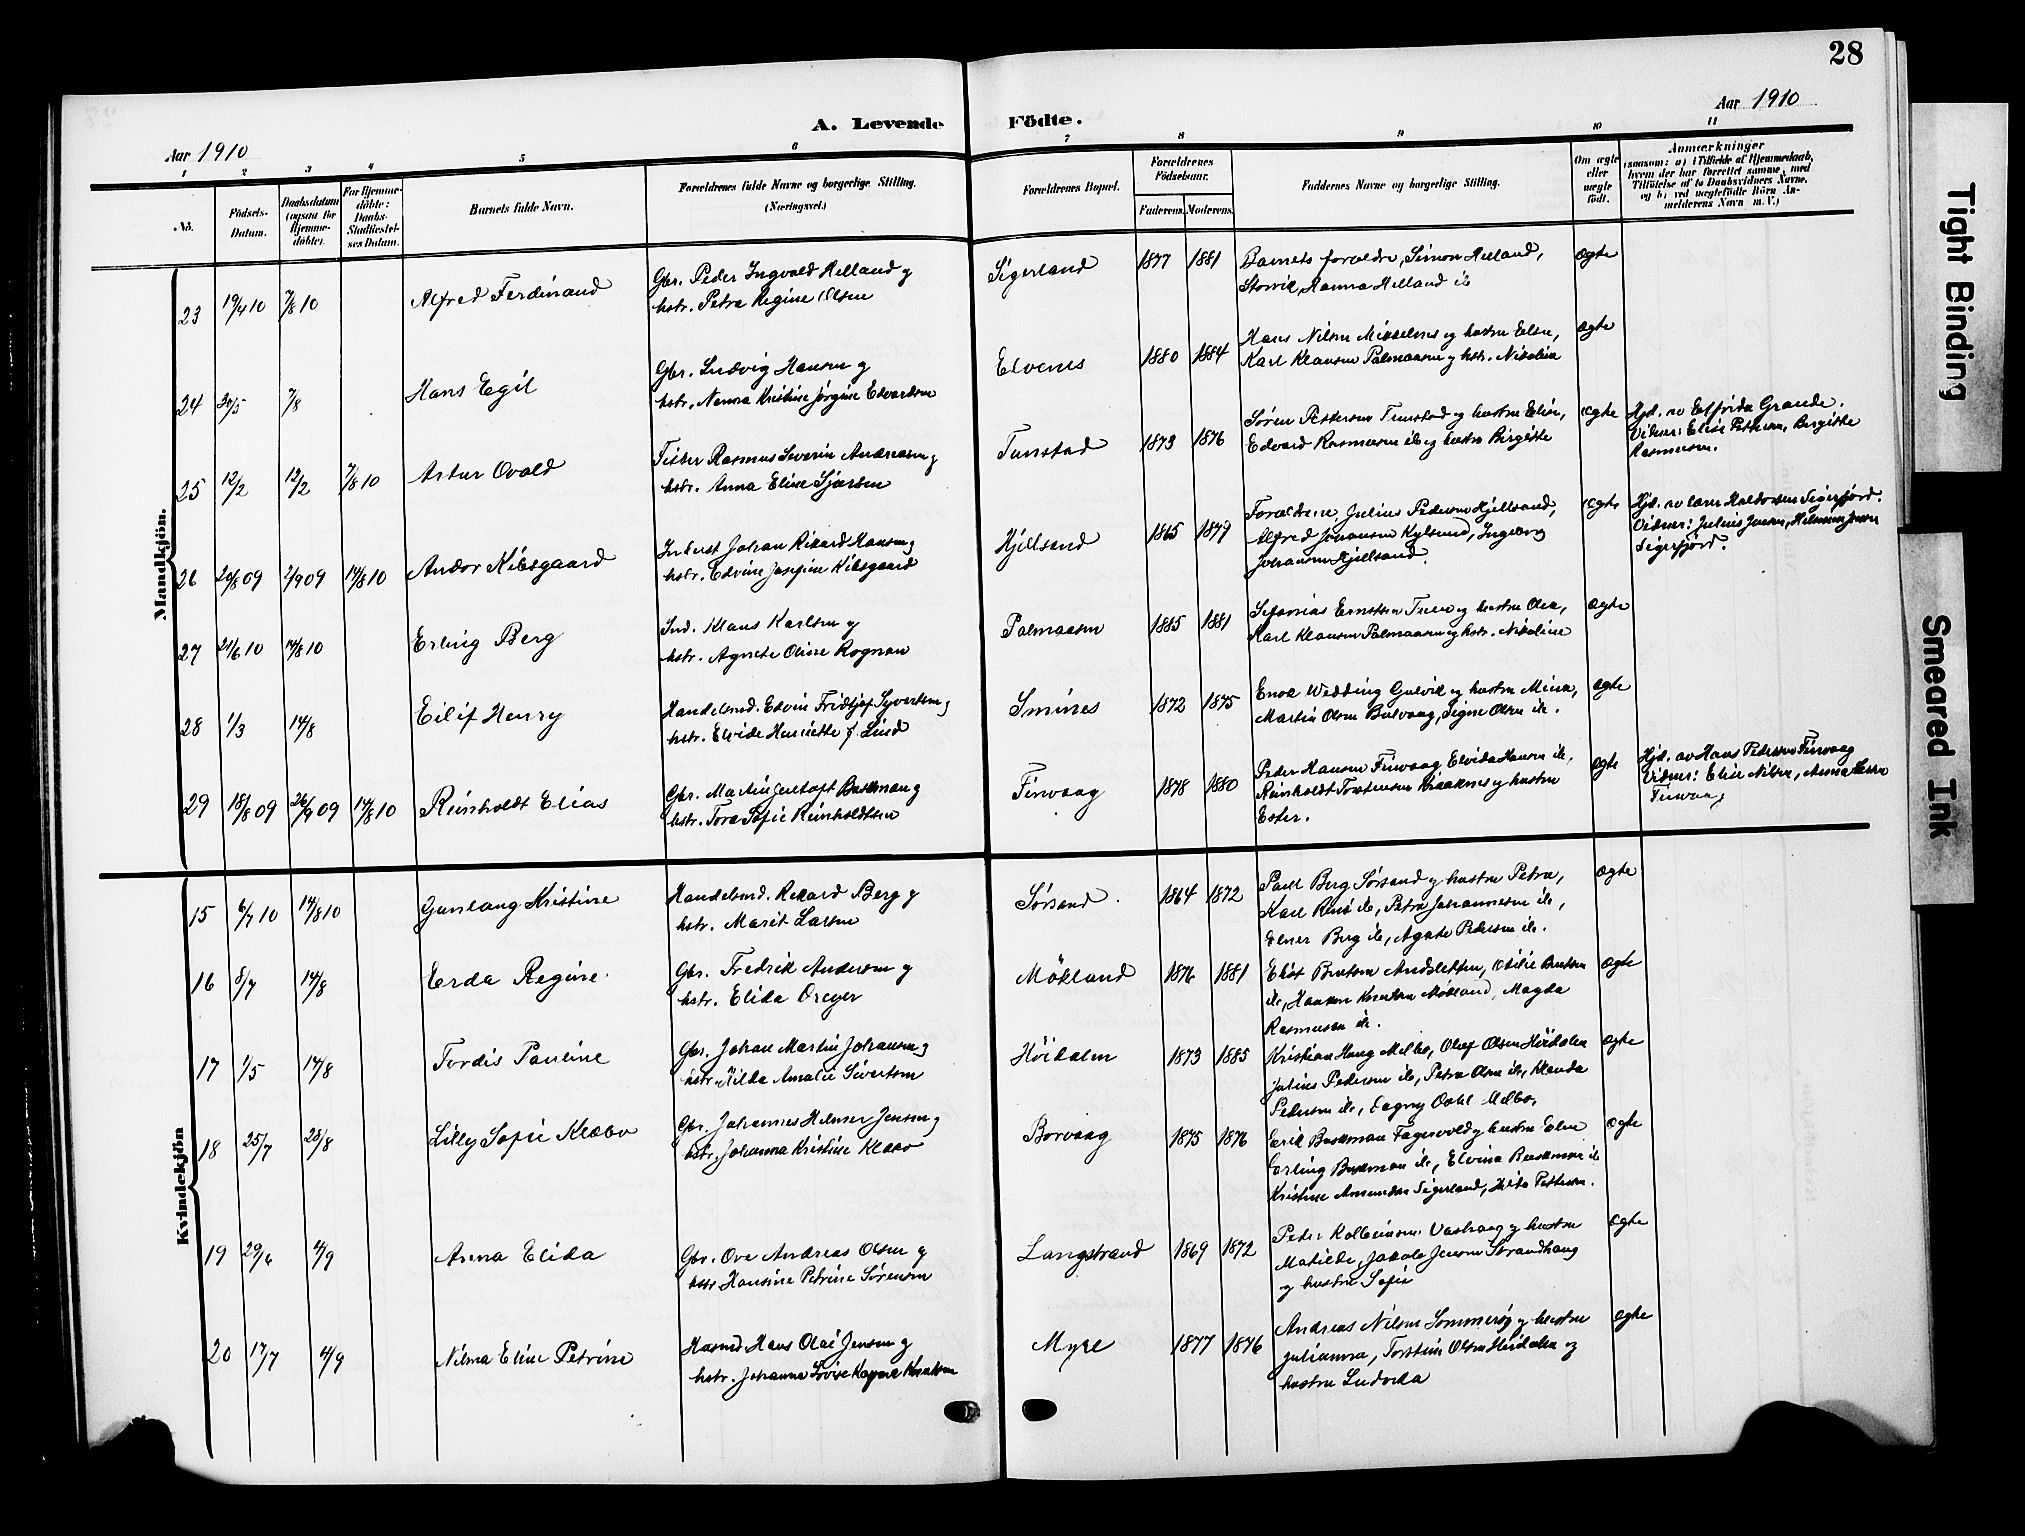 28
Aar 1910
A. Levende Födte.
Aar 1910
1 2 3 4 5 6 7 8 9 10 11
No.
Födsels-Datum.
Daabsdatum (ogsaa for Hjemmedöbte).
For Hjemmedöbte: Daabs-Stadfæstelses Datum.
Barnets fulde Navn.
Forældrenes fulde Navne og borgerlige Stilling.
(Næringsvei.)
Forældrenes Bopæl.
Forældrenes Födselsaar.
Faderens. Moderens.
Faddernes Navne og borgerlige Stilling.
Om ægte eller uægte födt.
Anmærkninger
(saasom: a) i Tilfælde af Hjemmedaab, hvem der har forrettet samme, med Tilföielse af to Daabsvidners Navne, og b) ved uægtefödte Börn Anmelderens Navn m. V.)
Mandkjön.
23 19/4 10 7/8 10 Alfred Ferdinand
Gbr. Peder Ingvald Helland og
hstr. Petra Regine Olsen
Sigerland 1877 1881
Barnets forældre, Simon Helland,
Storvik, Hanna Helland ib
ægte
24 30/5 7/8 Hans Egil
Gbr. Ludvig Hansen og
hstr. Nanna Kristine Jørgine Edvardsen
Elvenes 1880 1884
Hans Nilsen Misselnes og hustru Elen,
Karl Klausen Palmaasen og hstr. Nikolia
ægte
25 12/2 12/2 7/8 10 Artur Ovald
Fisker Rasmus Severin Andreasen og
hstr. Anna Eline Sjursen
Tunstad 1873 1876
Søren Pettersen Tunstad og hustru Elise,
Edvard Rasmussen ib og hustru Birgitte
ægte
Hjd. av Elfrida Grande.
Vidner: Elise Pettersen, Birgitte
Rasmussen.
26 20/8 09 2/9 09 14/8 10 Andor Kibsgaard
Inderst Johan Rikard Hansen og
hstr. Edvine Josefine Kibsgaard
Hjellsand 1865 1879
Forældrene, Julius Pedersen Hjellsand,
Alfred Johansen Hjelsand, Ingeborg
Johansen Hjellsand.
ægte
Hjd. av lærer Haldorsen Sigerfjord.
Vidner: Julius Jensen, Hilmine Jensen
Sigerfjord.
27 21/6 10 14/8 10 Erling Berg
Ind. Klaus Karlsen og
hstr. Agnete Oline Rognan
Palmaasen 1885 1881
Sefanias Ernstsen Tuen og hustru Olea,
Karl Klausen Palmaasen og hstr. Nikoline
ægte
28 1/3 14/8 Eilif Henry
Handelsmd. Edvin Fridtjof Syvertsen og
hstr. Elvide Henriette f. Lind
Smines 1872 1875
Enok Wedding Gulvik og hustru Mina,
Martin Olsen Bulvaag, Signe Olsen ib.
ægte
29 18/8 09 26/9 09 14/8 10 Reinholdt Elias
Gbr. Martin Jentoft Buschman og
hstr. Tora Sofie Reinholdtsen
Finvaag 1878 1880
Peder Hansen Finvaag, Elvida Hansen ib,
Reinholdt Torstensen Kraaknes og hustru
Ester.
ægte
Hjd. av Hans Pedersen Finvaag
Vidner: Elise Nilsen, Anna
Finvaag
Kvindekjön
15 6/7 10 14/8 10 Gunlaug Kristine
Handelsmd. Rikard Berg og
hstr. Marit Larsen
Sørsand. 1864 1872
Paul Berg Sørsand og hustru Petra,
Karl Renö ib, Petra Johannesen ib,
Elner Berg ib, Agate Pedersen ib.
ægte
16 8/7 14/8 Erda Regine.
Gbr. Fredrik Andersen og
hstr. Elida Dreyer
Mökland 1876 1881
Eliot Bentsen Andsletten, Otilie Bentsen
ib, Haakon Knutsen Mökland, Magda
Rasmussen ib.
ægte
17 1/5 14/8 Tordis Pauline
Gbr. Johan Martin Johansen og
hstr. Hilda Amalie Sivertsen
Höidalen 1873 1885
Kristian Haug Melbo, Oluf Olsen Höidalen
Julius Pedersen ib, Petra Olsen ib, Klauda
Pedersen ib, Dagny Dahl Melbo.
ægte
18 25/7 28/8 Lilly Sofie Klæbo
Gbr. Johannes Helmer Jensen og
hstr. Johanna Kristine Klæbo
Borvaag 1875 1876
Erik Buschman Fagervold og hustru Elen
Erling Buschman ib, Elvina Buschman ib
Kristine Amundsen Sigerland, Hilda Pettersen.
ægte
19 29/6 4/9 Anna Elida
Gbr. Ove Andreas Olsen og
hstr. Hansine Petrine Sørensen
Langstrand 1869 1872
Peder Kolbeinsen Vasvaag og hustru
Matilde, Jakob Jensen Strandhaug
og hustru Sofie
ægte
20 17/7 4/9 Nilma Eline Petrine
Husmd. Hans Olai Jensen og
hstr. Johanna Lovise Kasparà Knutsen
Myre 1877 1876
Andreas Nilsen Sommerøy og hustru
Julianna, Torstein Olsen Höidalen og
hustru Ludovika
ægte
Tight Binding
Smeared Ink